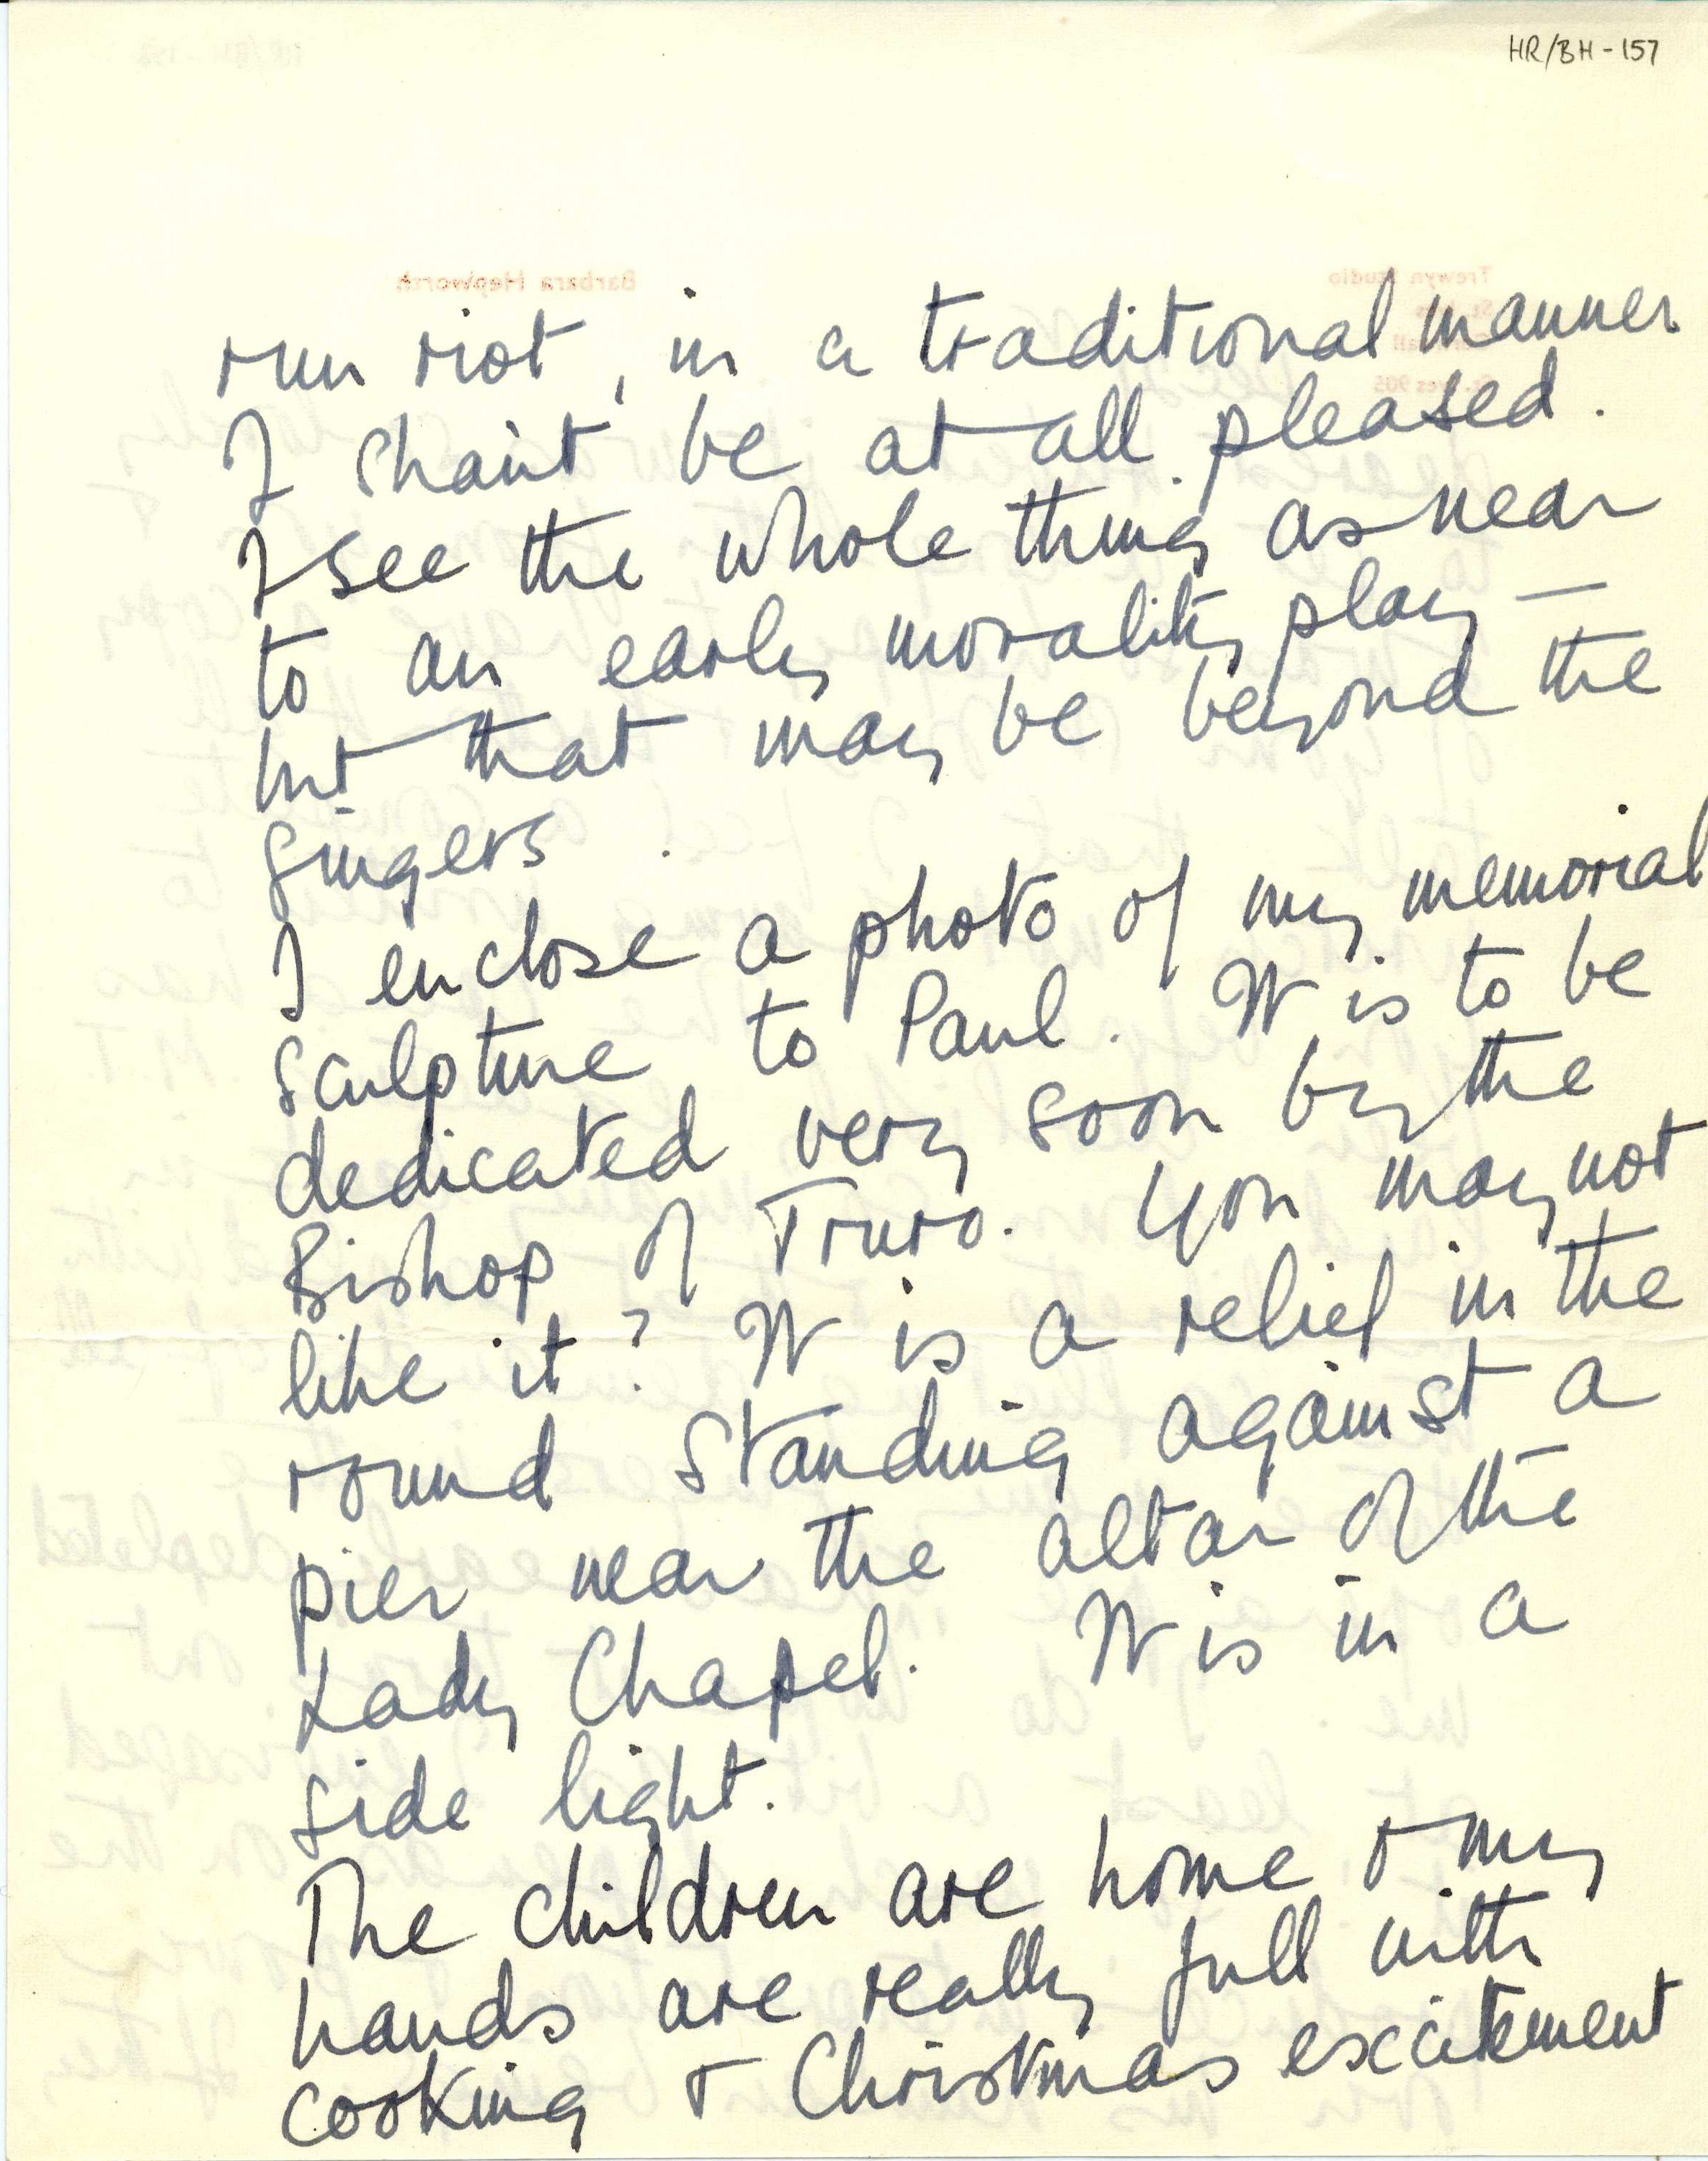 HR/BH-157
run riot, in a traditional manner
I shan't be at all pleased.
I see the whole thing as near
to an early morality play —
but that may be beyond the
singers.
I enclose a photo of my memorial
sculpture to Paul. It is to be
dedicated very soon by the
Bishop of Truro. You may not
like it? It is a relief in the
round standing against a
pier near the altar of the
Lady Chapel. It is in a
side light.
The children are home & my
hands are really full with
cooking & Christmas excitement